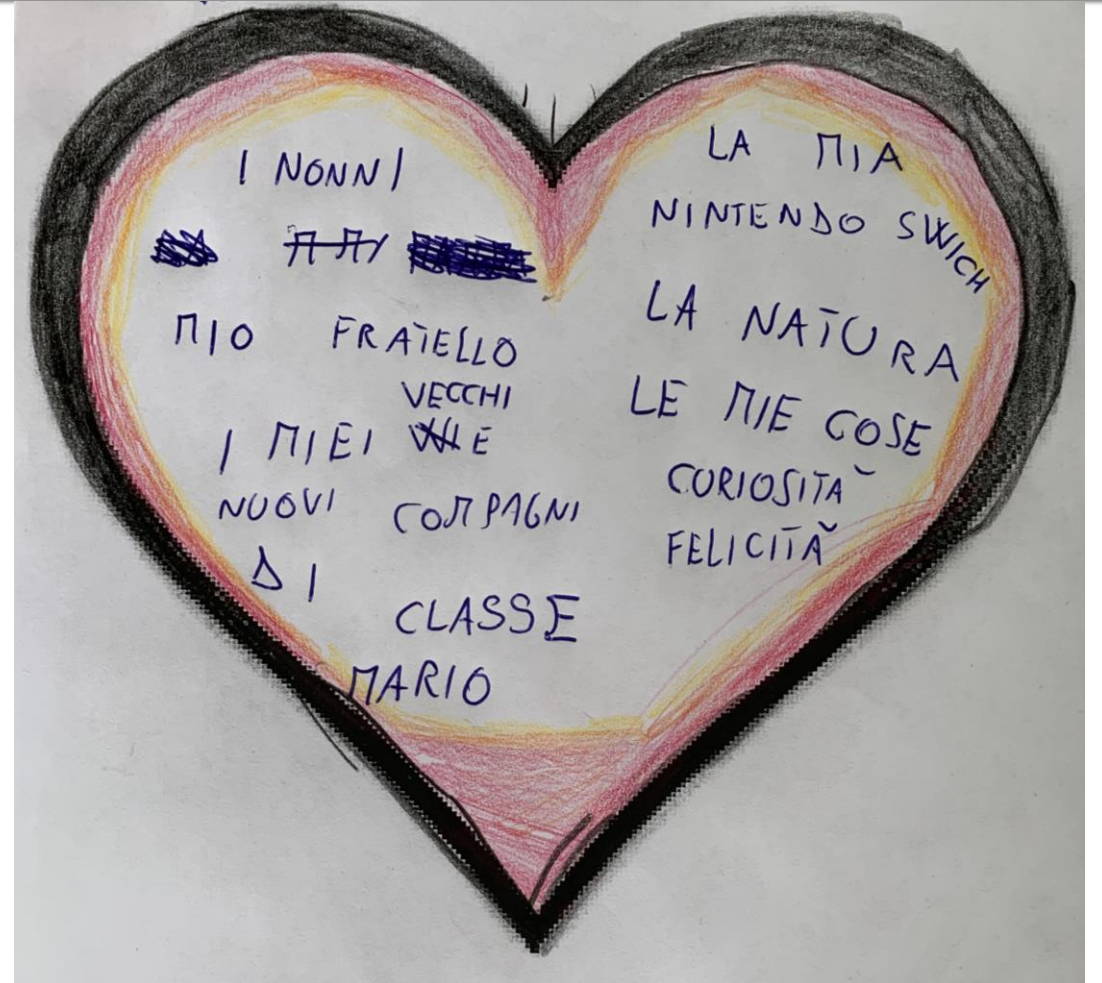 I NONNI
MIO FRATELLO
I MIEI VECCHI E
NUOVI COMPAGNI
DI
CLASSE
MARIO
LA MIA
NINTENDO SWICH
LA NATURA
LE MIE COSE
CURIOSITÀ
FELICITÀ